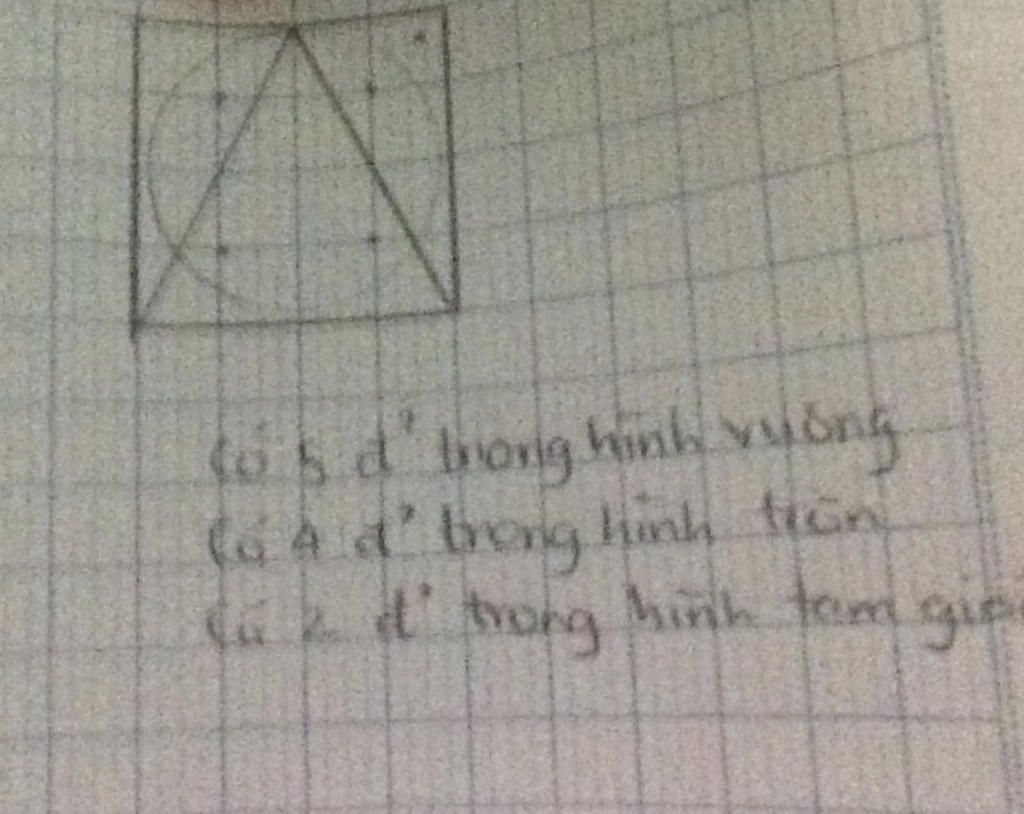 Có 5 đ' trong hình vuông
Có 4 đ' trong hình tròn
Có 2 đ' trong hình tam giá